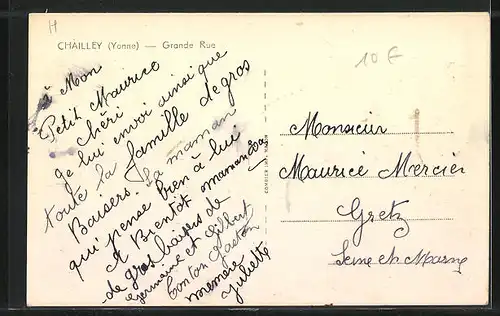 H
CHAILLEY (Yonne) — Grande Rue
10 €
à Mon
Petit Maurice
chéri
Je lui envoi ainsi que
toute la famille de gros
Baisers. La maman
qui pense bien à lui
A Bientôt maman
de gros baisers de
germaine et Gilbert
tonton Gaston
mémère
Juliette
Monsieur
Maurice Mercier
Gretz
Seine et Marne